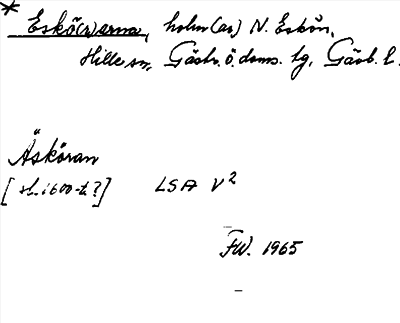 * Eskö(r)erna, holm(ar) N. Eskön,
Hille sn, Gästr. ö. doms. tg, Gävb. l.
Äsköran
[sl. 1600-t?] LSA V2
FW. 1965